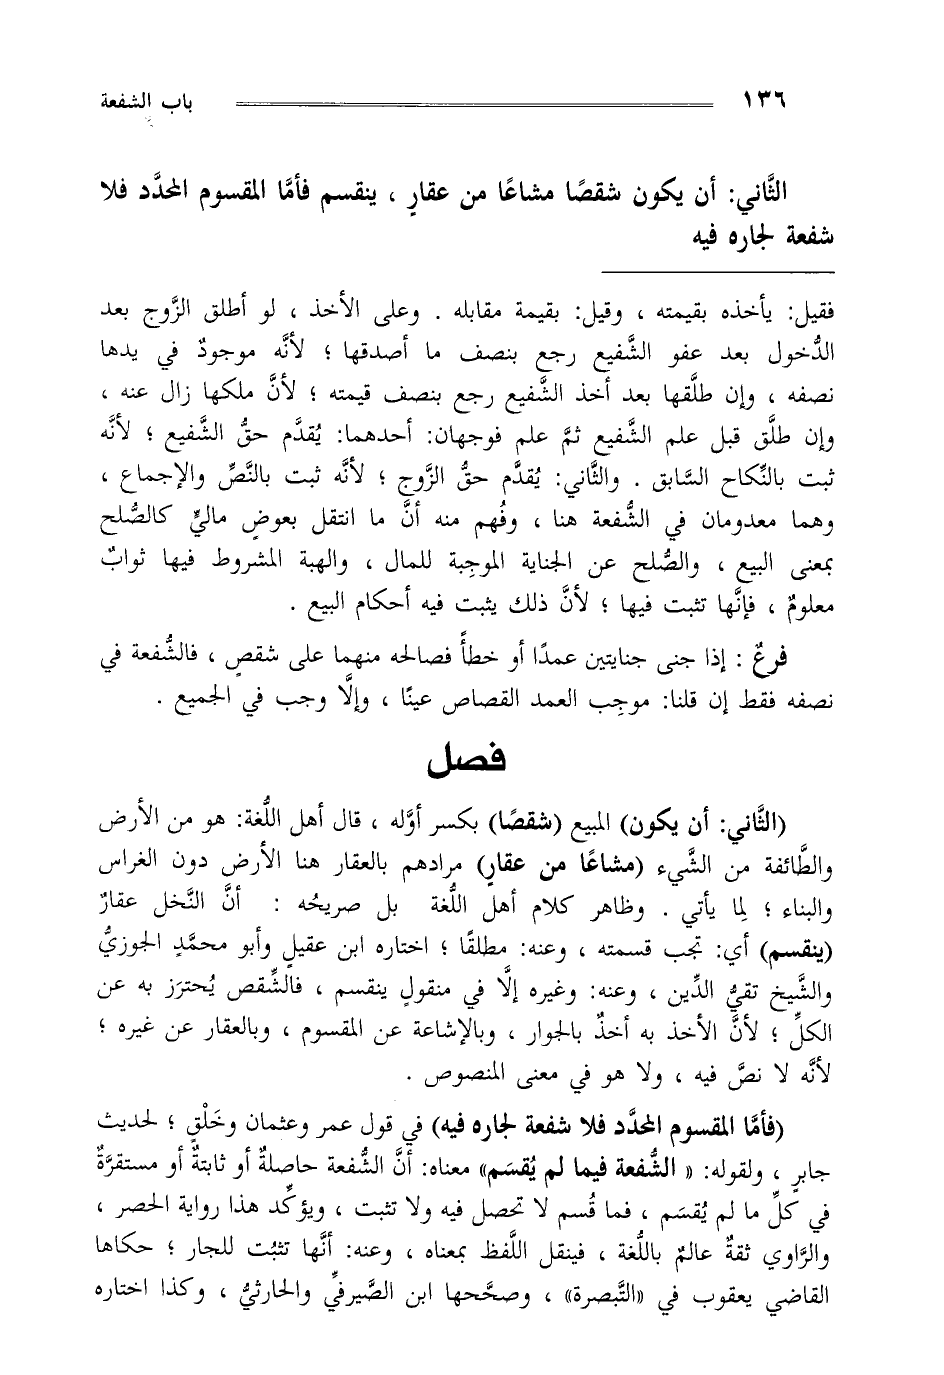 ١٣٦ باب الشفعة
الثَّاني: أن يكون شقصًا مشاعًا من عقارٍ ، ينقسم فأمَّا المقسوم المحدَّد فلا
شفعة لجاره فيه
فقيل: يأخذه بقيمته ، وقيل: بقيمة مقابله . وعلى الأخذ ، لو أطلق الزَّوج بعد
الدُّخول بعد عفو الشَّفيع رجع بنصف ما أصدقها ؛ لأنَّه موجودٌ في يدها
نصفه ، وإن طلَّقها بعد أخذ الشَّفيع رجع بنصف قيمته ؛ لأنَّ ملكها زال عنه ،
وإن طلَّق قبل علم الشَّفيع ثمَّ علم فوجهان: أحدهما: يُقدَّم حقُّ الشَّفيع ؛ لأنَّه
ثبت بالنِّكاح السَّابق . والثَّاني: يُقدَّم حقُّ الزَّوج ؛ لأنَّه ثبت بالنَّصِّ والإجماع ،
وهما معدومان في الشُّفعة هنا ، وفُهم منه أنَّ ما انتقل بعوضٍ ماليٍّ كالصُّلح
بمعنى البيع ، والصُّلح عن الجناية الموجِبة للمال ، والهبة المشروط فيها ثوابٌ
معلومٌ ، فإنَّها تثبت فيها ؛ لأنَّ ذلك يثبت فيه أحكام البيع .
فرعٌ : إذا جنى جنايتين عمدًا أو خطأً فصالحه منهما على شقصٍ ، فالشُّفعة في
نصفه فقط إن قلنا: موجِب العمد القصاص عينًا ، وإلَّا وجب في الجميع .
فصل
(الثَّاني: أن يكون) المبيع (شقصًا) بكسر أوَّله ، قال أهل اللُّغة: هو من الأرض
والطَّائفة من الشَّيء (مشاعًا من عقارٍ) مرادهم بالعقار هنا الأرض دون الغراس
والبناء ؛ لِما يأتي . وظاهر كلام أهل اللُّغة بل صريحُه : أنَّ النَّخل عقارٌ
(ينقسم) أي: تجب قسمته ، وعنه: مطلقًا ؛ اختاره ابن عقيلٍ وأبو محمَّدٍ الجوزيُّ
والشَّيخ تقيُّ الدِّين ، وعنه: وغيره إلَّا في منقولٍ ينقسم ، فالشِّقص يُحترَز به عن
الكلِّ ؛ لأنَّ الأخذ به أخذٌ بالجوار ، وبالإشاعة عن المقسوم ، وبالعقار عن غيره ؛
لأنَّه لا نصَّ فيه ، ولا هو في معنى المنصوص .
(فأمَّا المقسوم المحدَّد فلا شفعة لجاره فيه) في قول عمر وعثمان وخَلْقٍ ؛ لحديث
جابرٍ ، ولقوله: « الشُّفعة فيما لم يُقسَم» معناه: أنَّ الشُّفعة حاصلةٌ أو ثابتةٌ أو مستقرَّةٌ
في كلِّ ما لم يُقسَم ، فما قُسم لا تحصل فيه ولا تثبت ، ويؤكِّد هذا رواية الحصر ،
والرَّاوي ثقةٌ عالمٌ باللُّغة ، فينقل اللَّفظ بمعناه ، وعنه: أنَّها تثبُت للجار ؛ حكاها
القاضي يعقوب في «التَّبصرة» ، وصحَّحها ابن الصَّيرفيِّ والحارثيُّ ، وكذا اختاره